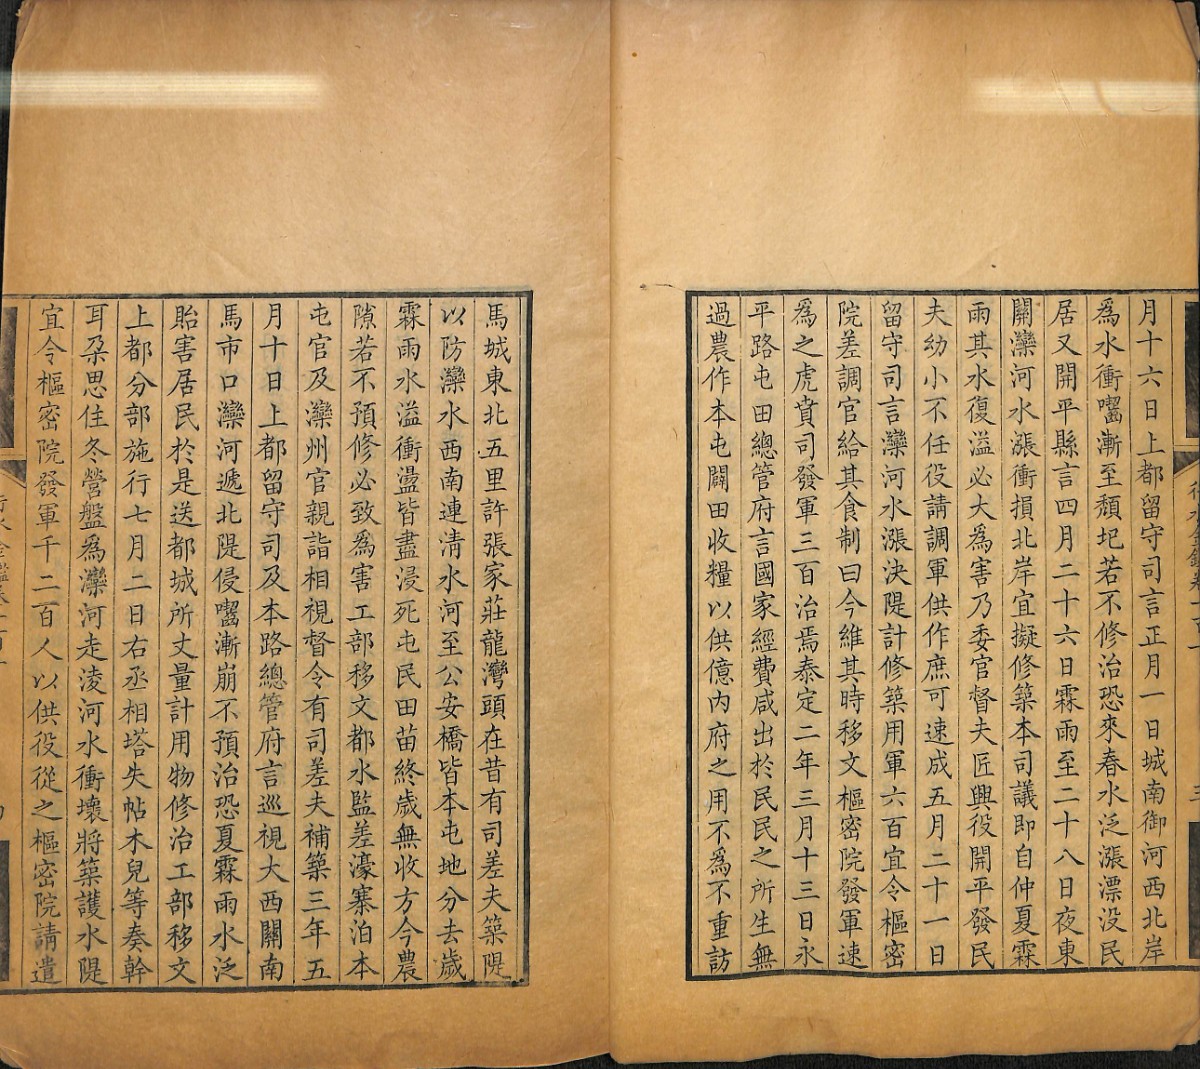 月十六日上都留守司言正月一日城南御河西北岸
為水衝囓漸至頹圯若不修治恐來春水泛漲漂没民
居又開平縣言四月二十六日霖雨至二十八日夜東
關灤河水漲衝損北岸宜擬修築本司議即自仲夏霖
雨其水復溢必大為害乃委官督夫匠興役開平發民
夫幼小不任役請調軍供作庶可速成五月二十一日
留守司言灤河水漲決隄計修築用軍六百宜令樞密
院差調官給其食制曰今維其時移文樞密院發軍速
為之虎賁司發軍三百治焉泰定二年三月十三日永
平路屯田總管府言國家經費咸出於民民之所生無
過農作本屯闢田收糧以供億内府之用不為不重訪
馬城東北五里許張家莊龍灣頭在昔有司差夫築隄
以防灤水西南連清水河至公安橋皆本屯地分去歲
霖雨水溢衝盪皆盡浸死屯民田苗終歲無收方今農
隙若不預修必致為害工部移文都水監差濠寨洎本
屯官及灤州官親詣相視督令有司差夫補築三年五
月十日上都留守司及本路總管府言巡視大西關南
馬市口灤河遞北隄侵囓漸崩不預治恐夏霖雨水泛
貽害居民於是送都城所丈量計用物修治工部移文
上都分部施行七月二日右丞相塔失帖木兒等奏幹
耳朶思住冬營盤為灤河走淩河水衝壞將築護水隄
宜令樞密院發軍千二百人以供役從之樞密院請遣